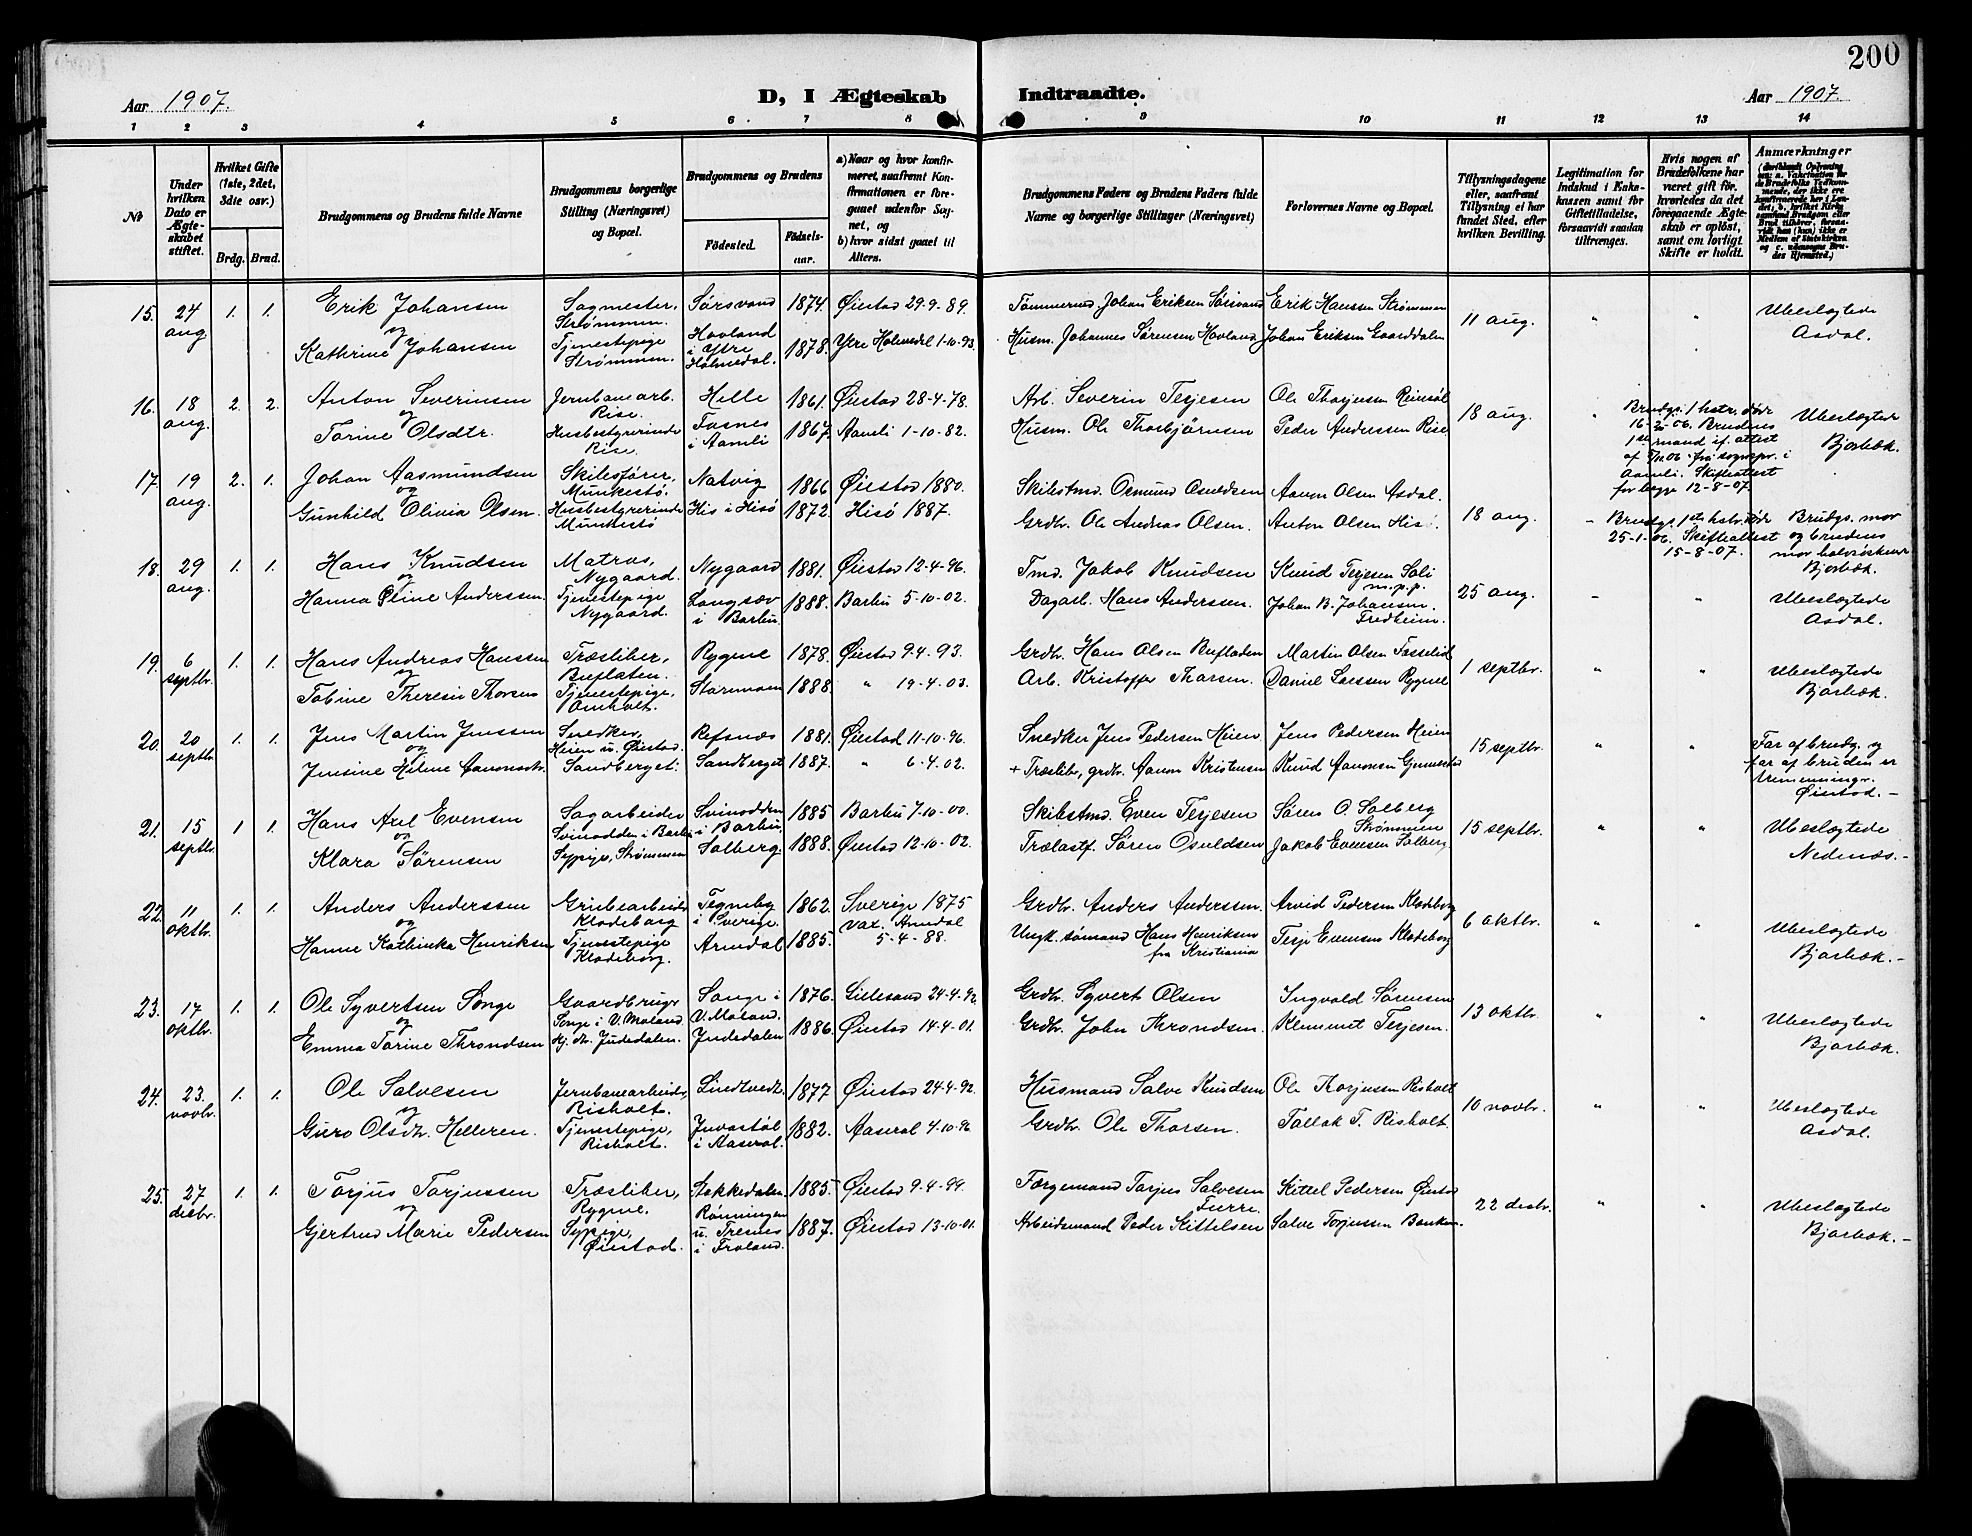 200
Aar 1907. D, I Ægteskab Indtraadte. Aar 1907.
1 2 3 4 5 6 7 8 9 10 11 12 13 14
No
Under hvilken Dato er Ægteskabet stiftet.
Hvilket Gifte (1ste, 2det, 3die osv.)
Brdg. Brud.
Brudgommens og Brudens fulde Navne
Brudgommens borgerlige Stilling (Næringsvei) og Bopæl.
Brudgommens og Brudens
Fødested. Fødselsaar.
a) Naar og hvor konfirmeret, saafremt Konfirmationen er foregaaet udenfor Sognet, og
b) hvor sidst gaaet til Alters.
Brudgommens Faders og Brudens Faders fulde Navne og borgerlige Stillinger (Næringsvei)
Forlovernes Navne og Bopæl.
Tillysningsdagene eller, saafremt Tillysning ei har fundet Sted, efter hvilken Bevilling.
Legitimation for Indskud i Enkekassen samt for Giftetilladelse, forsaavidt saadan tiltrænges.
Hvis nogen af Brudefolkene har været gift før, hvorledes da det foregaaende Ægteskab er opløst, samt om lovligt Skifte er holdt.
Anmærkninger
15. 24 aug. 1. 1. Erik Johansen og Kathrine Johansen
Sagmester, Strømmen. Tjenestepige Strømmen.
Sørsvand 1874. Øiestad 29-9-89.
Hovland i Ytre Holmedal. 1878. Ytre Holmedal 1-10-93.
Tømmermd. Johan Eriksen Sørsvand Erik Hanssen Strømmen
Husm. Johannes Sørensen Hovland Johan Eriksen Gaarddalen
11 aug. " " Ubeslægtede Asdal.
16. 18 aug. 2. 2. Anton Severinsen og Torine Olsdtr.
Jernbanearb. Rise. Husbestyrerinde Rise.
Helle 1861. Øiestad 28-4-78.
Fosnes i Aamli 1867. Aamli 1-10-82.
Arb. Severin Terjesen Ole Thorjussen Reiersøl
Husm. Ole Thorbjørnsen Peder Anderssen Rise
18 aug. " Brudgs. 1 hstr. døde 16-2-06. Brudens 1ste mand if. attest af 5/11 06 fra sognepr. i Aamli. Skifteattest for begge 12-8-07.
Ubeslægtede Bjorbæk.
17. 19 aug. 2. 1. Johan Aasmundsen og Gunhild Olivia Olsen.
Skibsfører, Munkestø. Husbestyrerinde Munkestø
Natvig 1866 Øiestad 1880.
His i Hisø 1872. Hisø 1887.
Skibstmd. Osmund Osuldsen Aanon Olsen Asdal.
Grdbr. Ole Andreas Olsen. Anton Olsen Hisø.
18 aug. - Brudgs. 1ste hstr. døde 25-1-06. Skifteattest 15-8-07.
Brudgs. mor og brudens mor halvsøskener Bjorbæk.
18. 29 aug. 1. 1. Hans Knudsen og Hanna Oline Anderssen.
Matros, Nygaard. Tjenestepige Nygaard.
Nygaard 1881. Øiestad 12-4-96.
Langsæv i Barbu. 1888. Barbu 5-10-02.
Tmd. Jakob Knudsen Knud Terjesen Soli m.p.p.
Dagarb. Hans Anderssen. Johan B. Johansen. Fredheim.
25 aug. - " Ubeslægtede Asdal.
19. 6 septbr. 1. 1. Hans Andreas Hanssen og Tobine Theresie Thorsen
Træsliber, Buflaten. Tjenestepige, Omholt.
Rygene 1878. Øiestad 9-4-93.
Stormoen 1888. " 19-4-03.
Grdbr. Hans Olsen Bufladen Martin Olsen Fosselid
Arb. Kristoffer Thorsen. Daniel Larssen Rygene
1 septbr. " " Ubeslægtede Bjorbæk.
20. 20 septbr. 1. 1. Jens Martin Jenssen og Jensine Helene Aanonsdtr.
Snedker, Heien u. Øiestad. Sandberget.
Refsnæs 1881. Øiestad 11-10-96.
Sandberget 1887. " 6-4-02.
Snedker Jens Pedersen Heien Jens Pedersen Heien
+ Træslibr, grdbr. Aanon Kristensen Knud Aanonsen Gjennestad
15 septbr. " " Far af brudg. og far af bruden er tremenninger. Øiestad.-
21. 15 septbr. 1 1. Hans Axel Evensen og Klara Sørensen
Sagarbeider Svinodden i Barbu Sypige, Strømmen
Svinodden i Barbu. 1885 Barbu 7-10-00.
Solberg. 1888. Øiestad 12-10-02.
Skibstmd. Even Terjesen Søren O. Solberg Strømmen
Trælastf. Søren Osuldsen Jakob Evensen Solberg
15 septbr. " " Ubeslægtede Nedenæs.-
22. 11 oktbr. 1. 1. Anders Anderssen og Hanne Kathinka Henriksen
Grubearbeider Klodeborg Tjenestepige Klodeborg.
Tegneby i Sverige. 1862. Sverige 1875
Arendal 1885. vax. Arendal 5-4-88.
Grdbr. Anders Anderssen. Arvid Pedersen Klodeborg
Ungk. sømand Hans Henriksen fra Kristiania Terje Evensen Klodeborg
6 oktbr. " " Ubeslægtede Bjorbæk.-
23. 17 oktbr. 1. 1. Ole Syvertsen Songe og Emma Torine Throndsen
Gaardbruger Songe i V. Moland. Hj. dtr. Judedalen.
Songe i V. Moland. 1876. Lillesand 24-4-92.
Judedalen 1886. Øiestad 14-4-01.
Grdbr. Syvert Olsen Ingvald Sørensen
Grdbr. John Throndsen. Klemmet Terjesen.
13 oktbr. " " Ubeslægtede Bjorbæk.
24. 23. novbr. 1. 1. Ole Salvesen og Guro Olsdtr. Helleren.
Jernbanearbeider, Risholt. Tjenestepige, Risholt.
Lindtvedt 1877 Øiestad 24-4-92.
i Aaseral. 1882. Aaseral 4-10-96
Husmand Salve Knudsen Ole Thorjussen Risholt
Grdbr. Ole Thorsen. Tallak T. Risholt.
10 novbr. " " Ubeslægtede Asdal.
25. 27 decbr. 1. 1. Torjus Torjussen og Gjertrud Marie Pedersen
Træsliber, Rygene. Sypige, Øiestad.
Stokkedalen. 1885. Øiestad 9-4-99.
Rønningen u. Tresnes i Froland. 1887. Øiestad 13-10-01.
Færgemand Torjus Salvesen Furre. Kittel Pedersen Øiestad
Arbeidsmand Peder Kittelsen Salve Torjussen Banken.
22 decbr. " " Ubeslægtede Bjorbæk.-